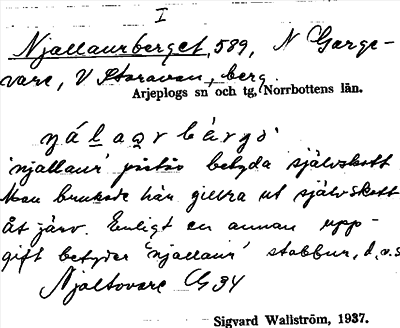 I
Njallaurberget, 589, N Garge-
vare, V Storavan, berg.
Arjeplogs sn och tg, Norrbottens län.
'njallaur' betyda självskott
Man brukade här gillra ut självskott
åt järv. Enligt en annan upp-
gift betyder 'njallaur' stabbur, d.v.s
Njaltovare G 34
Sigvard Wallström, 1937.